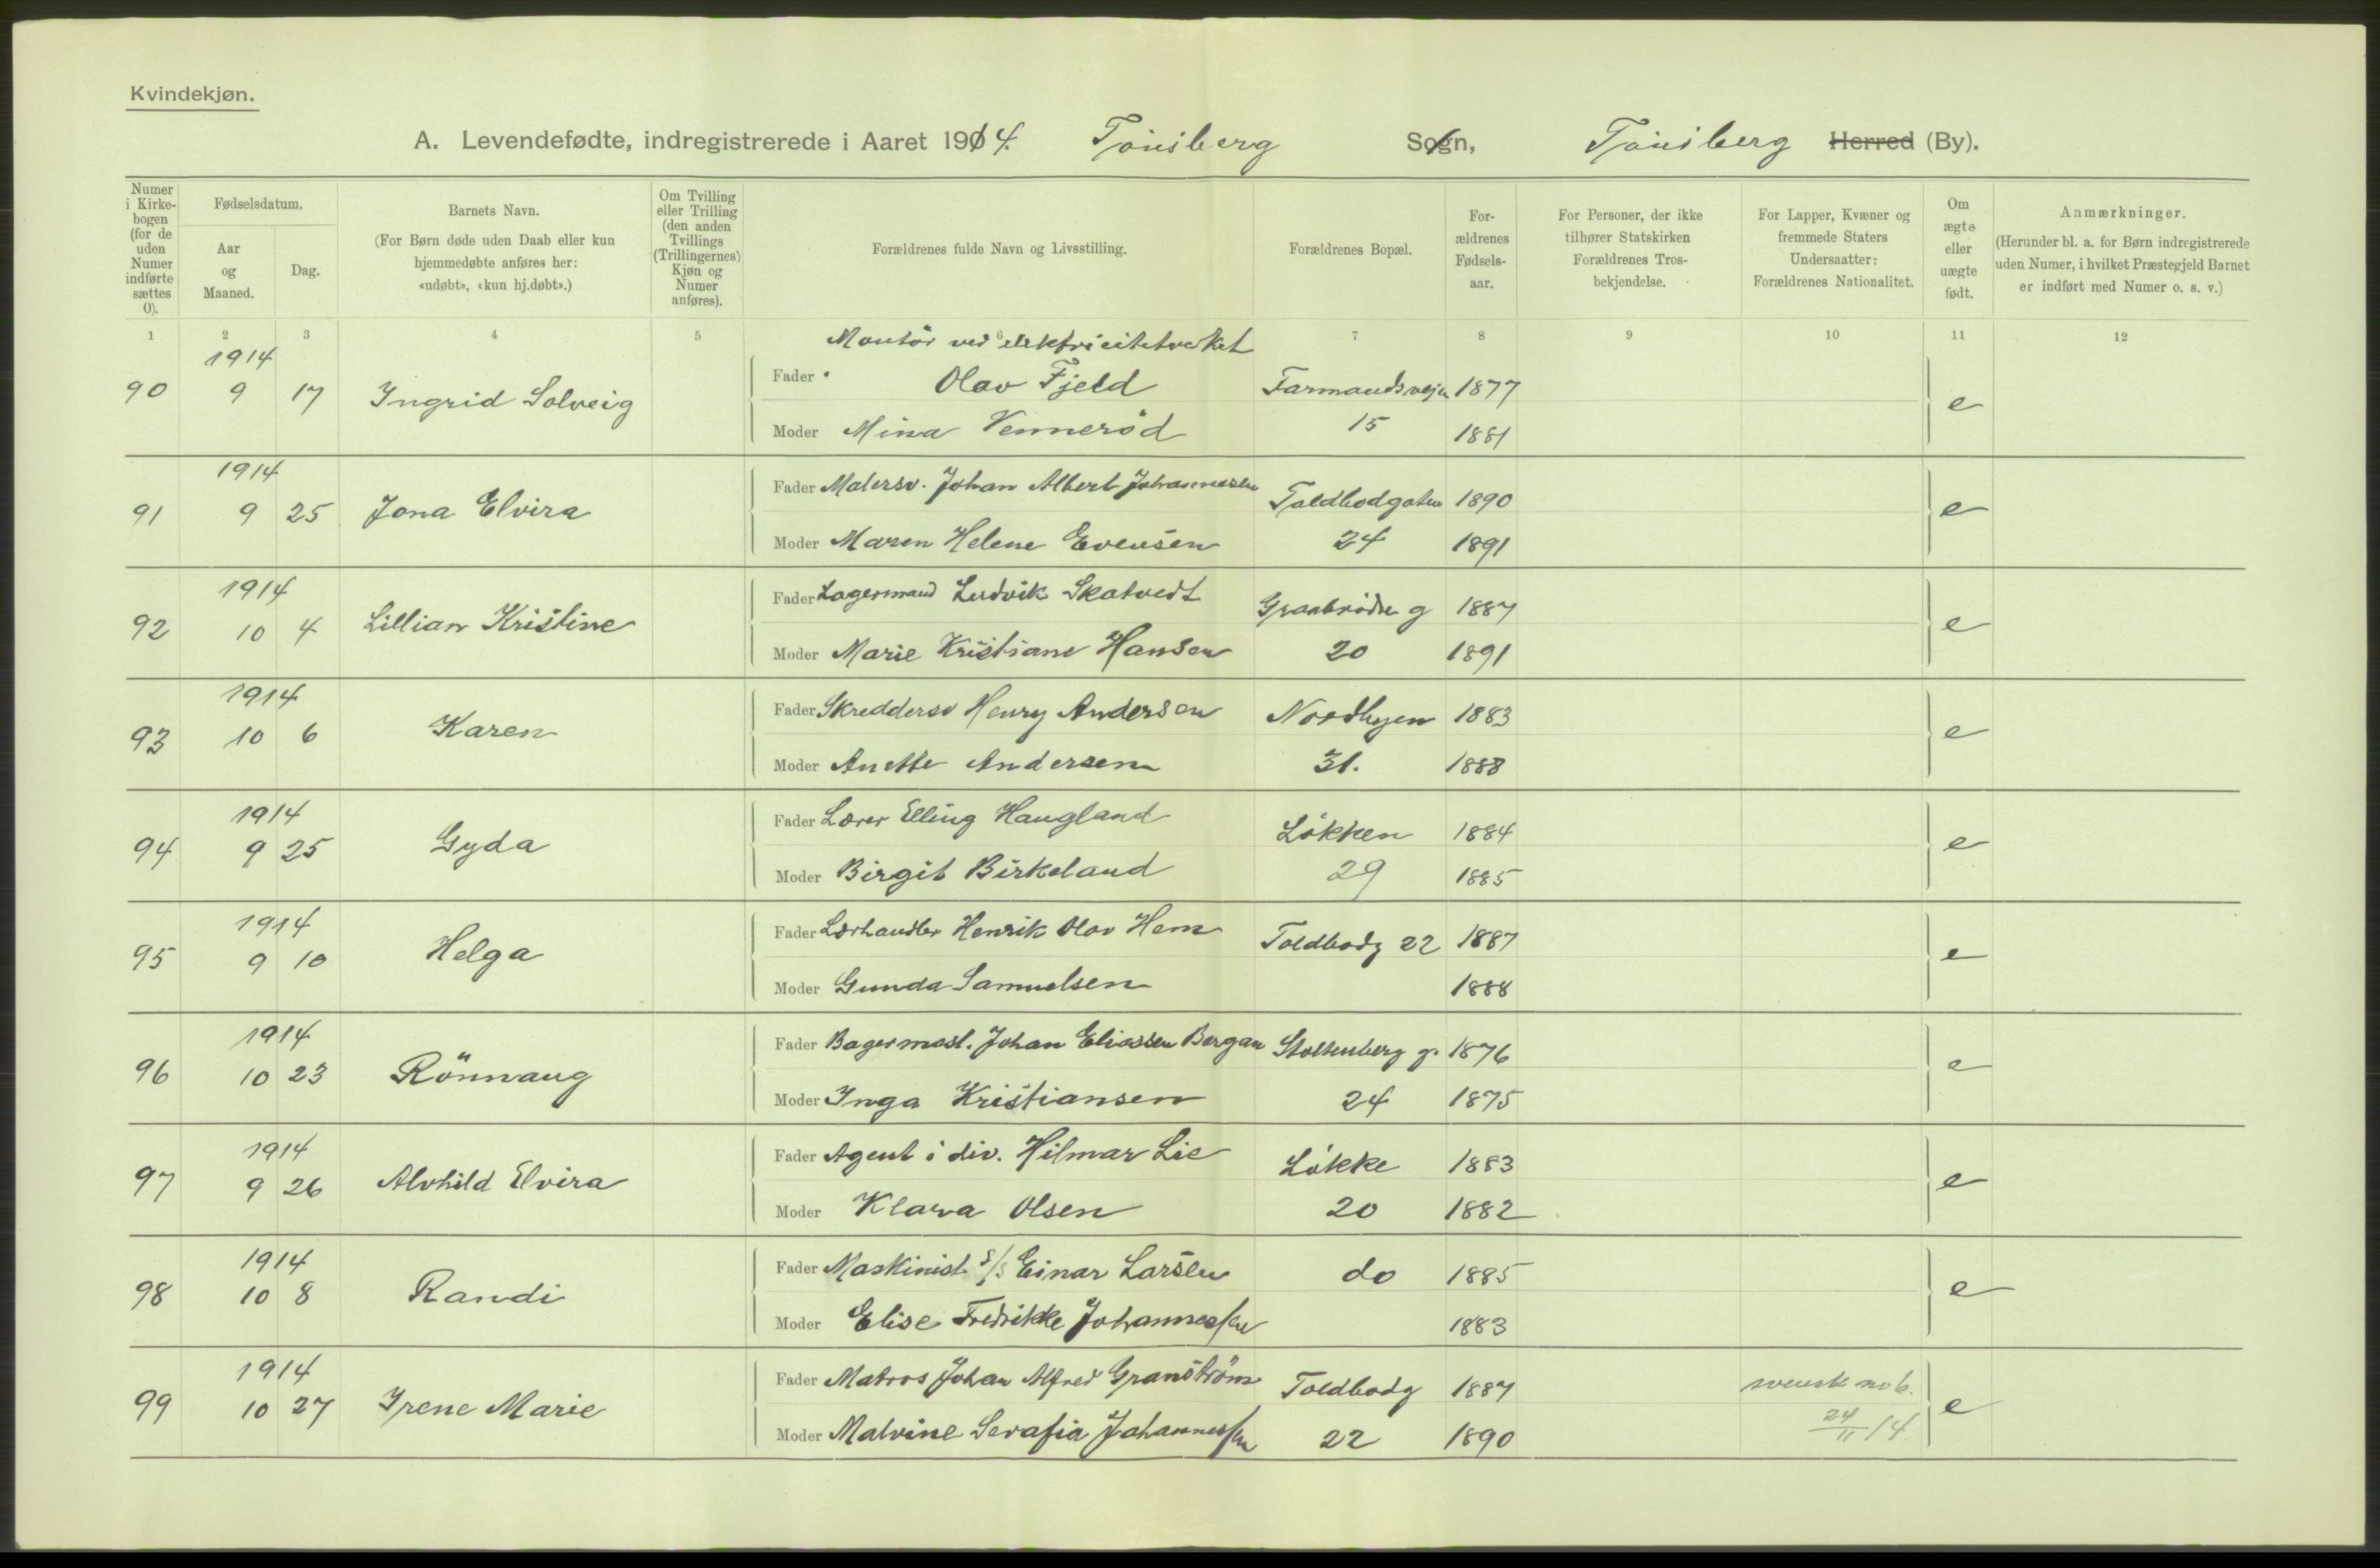 Kvindekjøn.
A. Levendefødte, indregistrerede i Aaret 1914. Tønsberg Sogn, Tønsberg Herred (By).
Numer i Kirke-bogen (for de uden Numer indførte sættes 0).
Fødselsdatum.
Aar og Maaned.
Dag.
Barnets Navn.
(For Børn døde uden Daab eller kun hjemmedøbte anføres her: «udøbt», «kun hj.døbt».)
Om Tvilling eller Trilling (den anden Tvillings (Trillingernes) Kjøn og Numer anføres).
Forældrenes fulde Navn og Livsstilling.
Forældrenes Bopæl.
For-ældrenes Fødsels-aar.
For Personer, der ikke tilhører Statskirken Forældrenes Tros-bekjendelse.
For Lapper, Kvæner og fremmede Staters Undersaatter: Forældrenes Nationalitet.
Om ægte eller uægte født.
Anmærkninger.
(Herunder bl. a. for Børn indregistrerede uden Numer, i hvilket Præstegjeld Barnet er indført med Numer o. s. v.)
1 2 3 4 5 6 7 8 9 10 11 12
Montör ved elektricitetverket
90 1914 9 17 Ingrid Solveig Fader Olav Fjeld Farmandsvejn 1877 e
Moder Mina Vennerød 15 1881
91 1914 9 25 Jona Elvira Fader Malersv. Johan Albert Johannesen Toldbodgaten 1890 e
Moder Maren Helene Evensen 24 1891
92 1914 10 4 Lillian Kristine Fader Lagermand Ludvik Skatvedt Graabrödre g 1887 e
Moder Marie Kristiane Hansen 20 1891
93 1914 10 6 Karen Fader Skreddersv Henry Andersen Nordbyen 1883 e
Moder Anette Andersen 31. 1888
94 1914 9 25 Gyda Fader Lærer Elling Haugland Løkken 1884 e
Moder Birgit Birkeland 29 1885
95 1914 9 10 Helga Fader Lærhandler Henrik Olav Hem Toldbodg 22 1887 e
Moder Gunda Samuelsen 1888
96 1914 10 23 Rönnaug Fader Bagermest. Johan Eliassen Bergan Stoltenberg g. 1876 e
Moder Inga Kristiansen 24 1875
97 1914 9 26 Alvhild Elvira Fader Agent i div. Hilmar Lie Løkke 1883 e
Moder Klara Olsen 20 1882
98 1914 10 8 Randi Fader Maskinist S/S Einar Larsen do 1885 e
Moder Elise Fredrikke Johannessen 1883
99 1914 10 27 Irene Marie Fader Matros Johan Alfred Granström Toldbodg 1887 svensk e
Moder Malvine Serafia Johannessen 22 1890 24/11 14